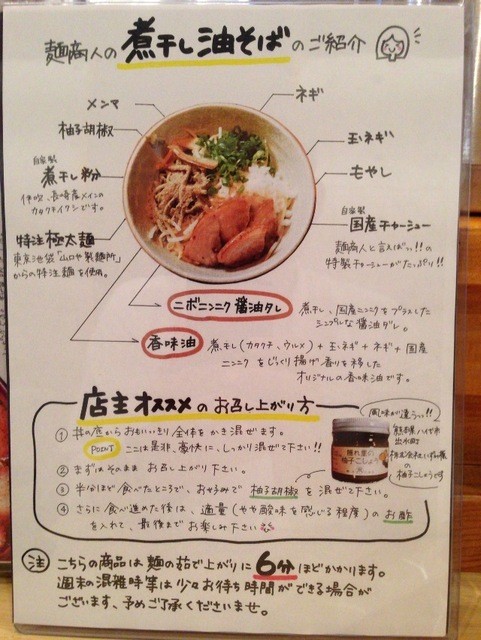 麺商人の 煮干し油そば のご紹介
メンマ
ネギ
柚子胡椒
玉ネギ
自家製
煮干し粉
伊吹、長崎産メインの
カタクチイワシです。
もやし
自家製
国産チャーシュー
麺商人と言えばッ!!の
特製チャーシューがたっぷり!!
特注極太麺
東京池袋「山口や製麺所」
からの特注麺を使用。
ニボニンニク醤油タレ
煮干し、国産ニンニクをプラスした
シンプルな醤油ダレ。
香味油
煮干し(カタクチ、ウルメ)+玉ネギ+ネギ+国産
ニンニクをじっくり揚げ香りを移した
オリジナルの香味油です。
店主オススメのお召し上がり方
① 丼の底からおもいっきり全体をかき混ぜます。
POINT ここは是非、豪快に、しっかり混ぜて下さい!!
② まずはそのままお召し上がり下さい。
③ 半分ほど食べたところで、お好みで柚子胡椒を混ぜて下さい。
④ さらに食べ進めた後は、適量(やや酸味を感じる程度)のお酢
を入れて、最後までお楽しみ下さい
風味が違うッ!!
熊本県八代市
の柚子こしょうです
隠れ里の
柚子こしょう
注 こちらの商品は麺の茹で上がりに6分ほどかかります。
週末の混雑時等は少々お待ち時間ができる場合が
ございます、予めご了承くださいませ。